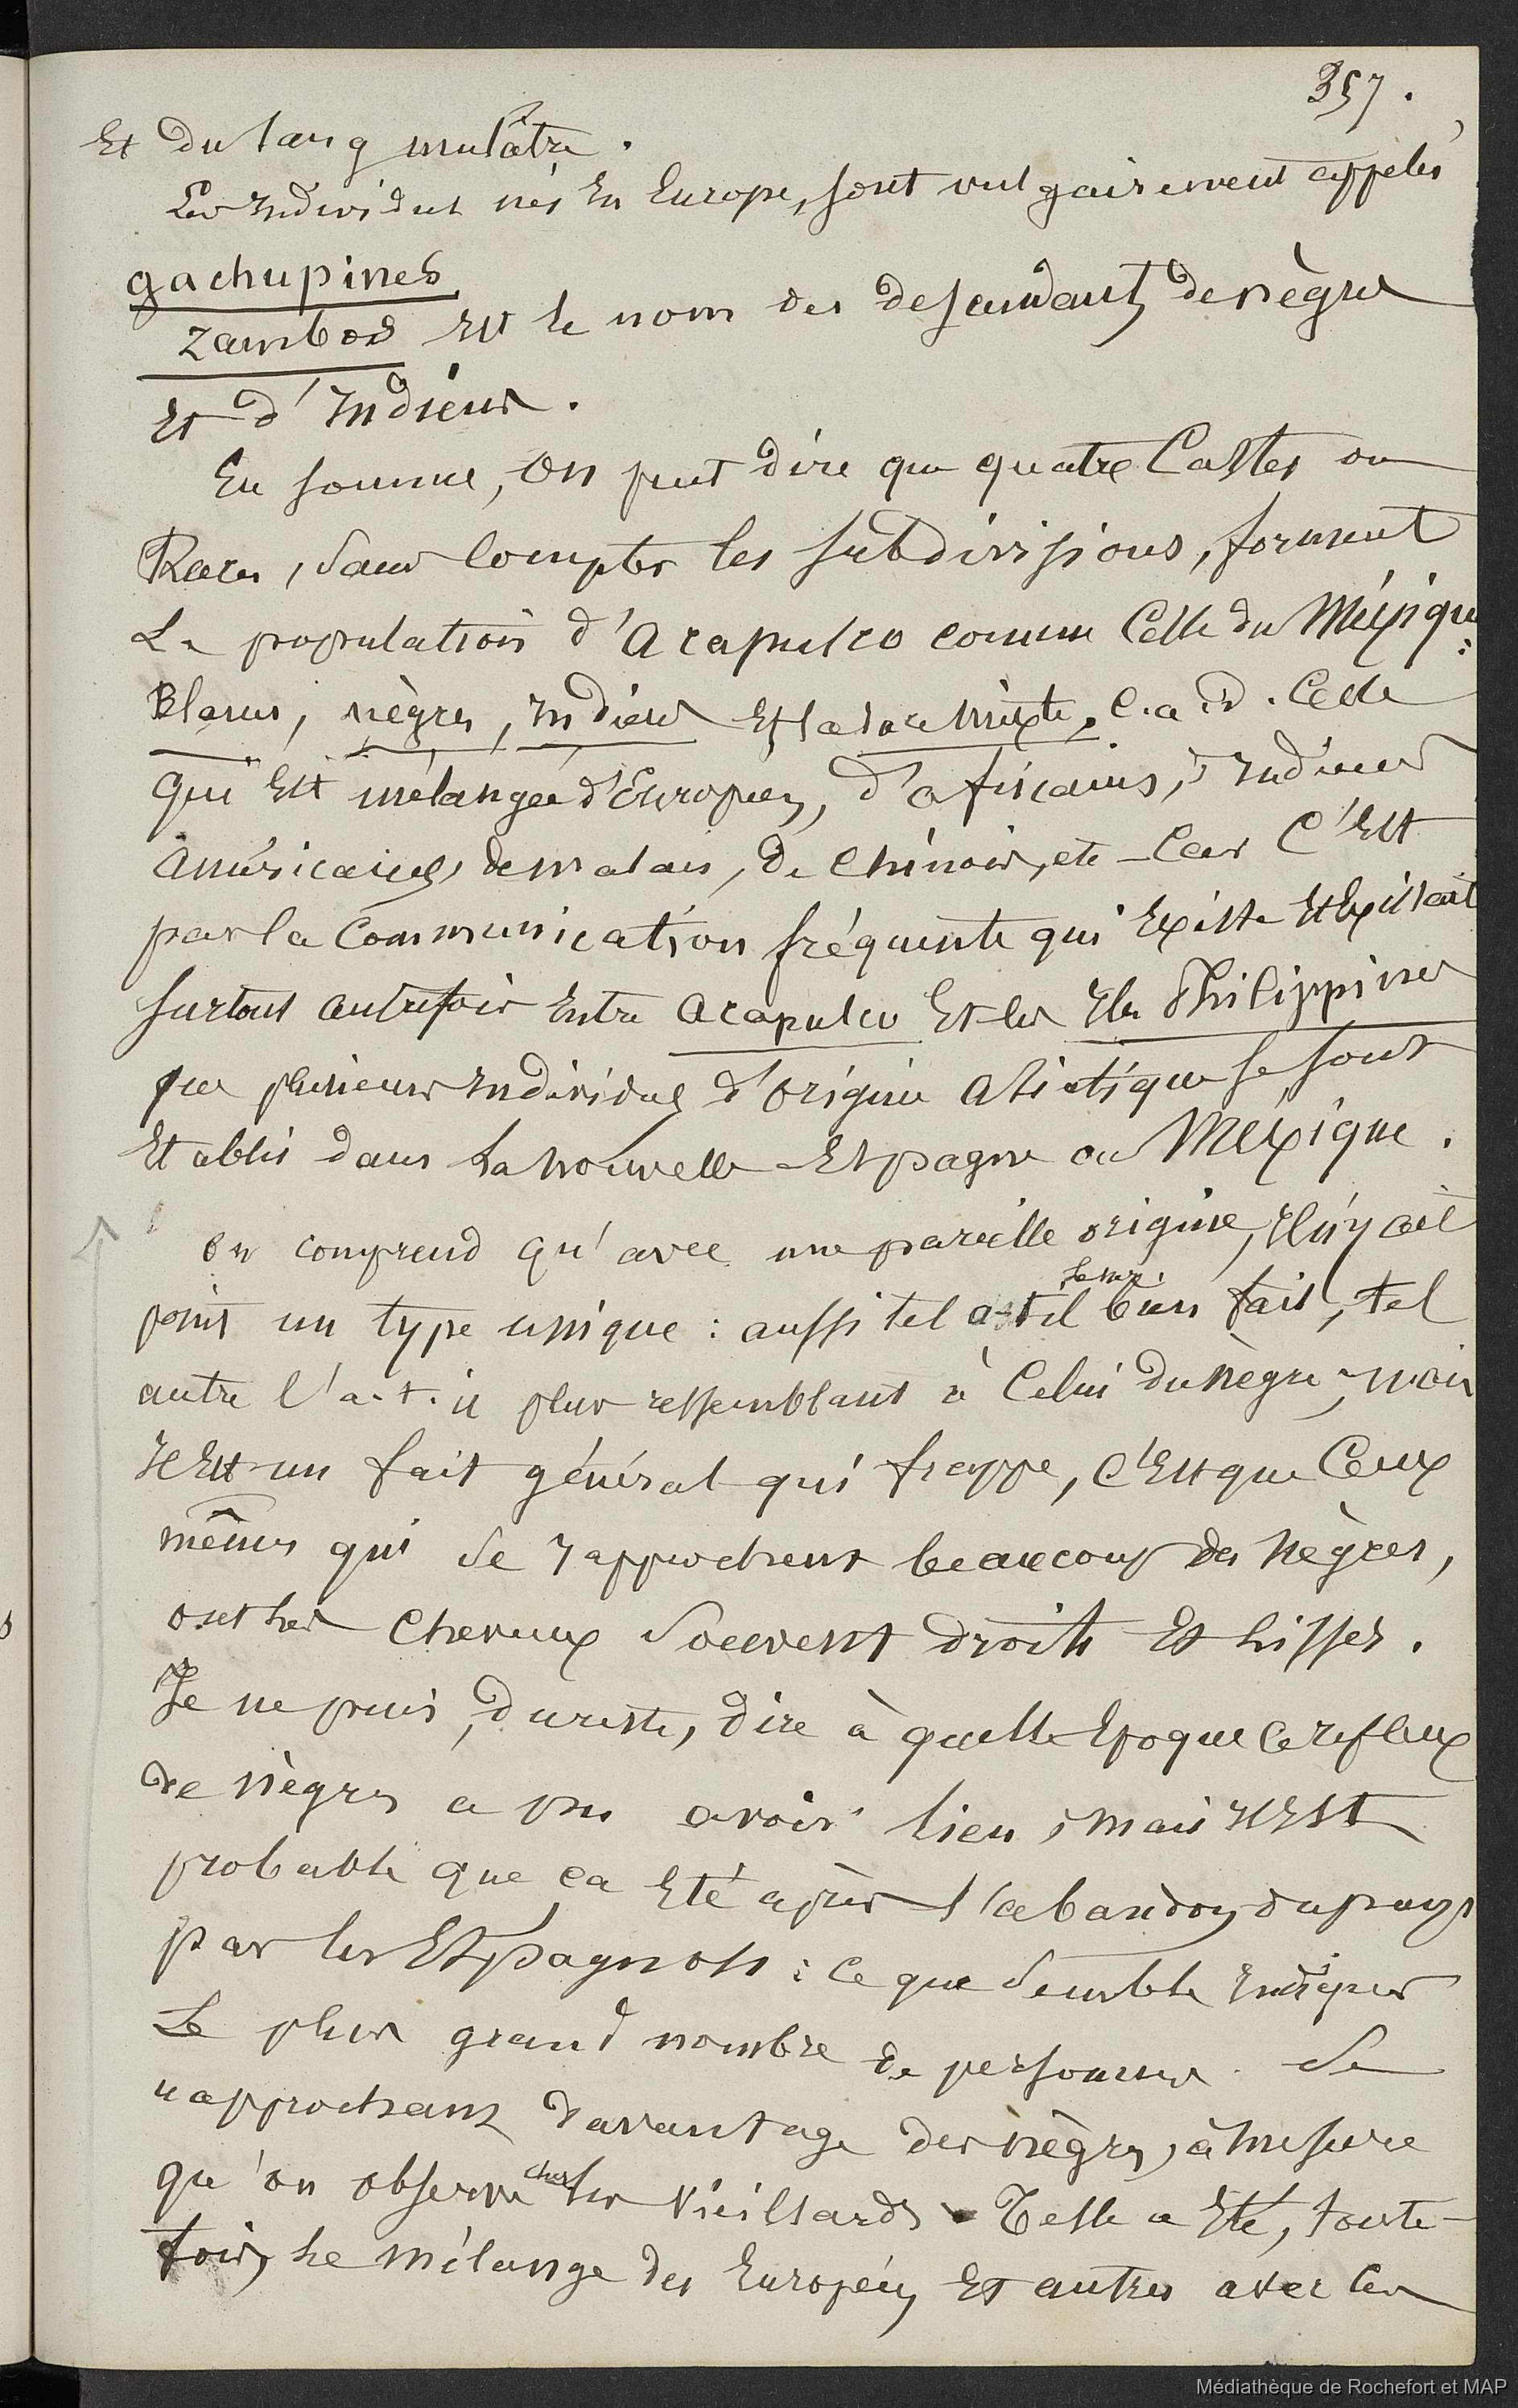 357.
Et du sang mulâtre.
Les Individus nés En Europe, sont vulgairement appelés
gachupines
Zambos Est le nom des descendants de nègres
Et d'Indiens.
En somme, On peut dire que quatre Castes ou
Races, sans Compter les subdivisions, forment
La population d'Acapulco comme Celle du Méxique :
Blancs, nègres, Indiens Et la race Mixte, C.a.d. Celle
qui Est mélangée d'Européens, d'africains, d'Indiens
américains, de malais, de Chinois, etc - Car C'Est
par la Communication fréquente qui Existe Et Existait
surtout autrefois Entre Acapulco Et les Iles Philippines
que plusieurs Individus d'Origine Asiatique se sont
Etablis dans La Nouvelle-Espagne ou Méxique.
On comprend qu'avec une pareille origine, Il n'y ait
point un type unique : aussi tel a-t-il le nez bien fait, tel
autre l'a-t-il plus ressemblant à Celui du Nègre ; mais
Il Est un fait général qui frappe, C'Est que Ceux
mêmes qui se rapprochent beaucoup des Nègres,
ont les Cheveux souvent droits Et lisses.
Je ne puis, du reste, dire à quelle Epoque Ce reflux
de Nègres a pu avoir lieu ; mais Il Est
probable que ça Eté après l'abandon du pays
par les Espagnols : Ce que semble Indiquer
Le plus grand nombre de personnes se
rapprochant davantage des Nègres, à Mesure
qu'on observe chez les Vieillards. Telle a Eté, toute-
fois, Le Mélange des Européens Et autres avec les
Médiathèque de Rochefort et MAP